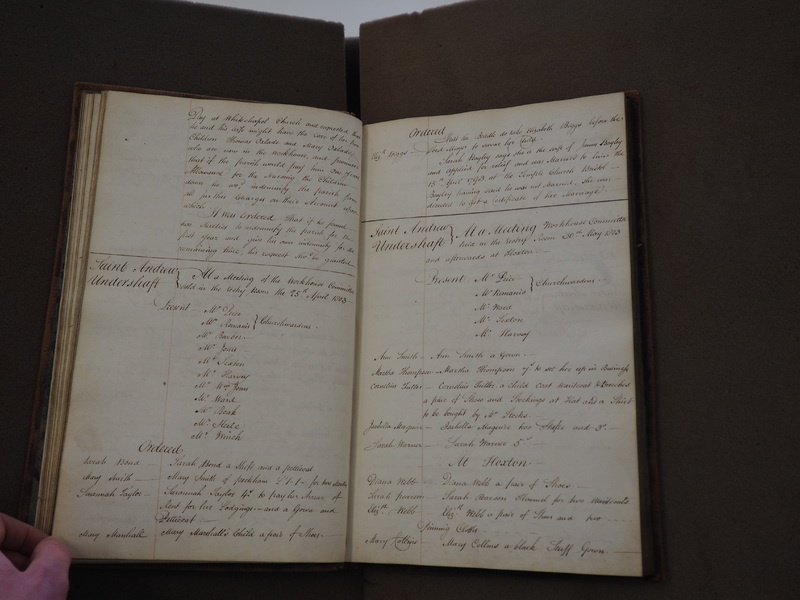 Day at Whitechapel Church and requested that
he and his wife might have the care of her two
Children Thomas and Mary
who are now in the Workhouse and promises
that if the parish would pay him
Allowance for the Nursing the Children
down he wod. indemnify the parish from
all further Charges on their Account
It was Ordered That if he found
two Sureties to indemnify the parish for the
first year and give his own indemnity for the
remaining time, his request shod. be granted
Saint Andrew Undershaft } At a Meeting of the Workhouse Committee
held in the Vestry Room the 25th April 1803
Present Mr Price
Mr Romanis } Churchwardens
Mr Barber
Mr
Mr Sexton
Mr Harvey
Mr Wm Jones
Mr Ward
Mr Cook
Mr Steele
Mr Winch
Ordered
Sarah Bond Sarah Bond a Shift and a petticoat
Mary Smith Mary Smith of peckham £1.1 for two
Susannah Taylor Susannah Taylor 42/ to pay her Arrear of
Rent for her Lodgings and a Gown and
Petticoat
Mary Marshall Mary Marshall's Child a pair of Shoes
Ordered
That the Beadle do take Elizabeth Biggs before the
Elizth Biggs Lord Mayor to swear her Child
Sarah Bayley says she is the wife of James Bayley
and applied for relief and was Married to him the
15th April 1793 at the Temple Church Bristol
Bayley having said he was not Married, She was
directed to get a Certificate of her Marriage
Saint Andrew Undershaft } At a Meeting Workhouse Committee
held in the Vestry Room 30th May 1803
and afterwards at Hoxton
Present Mr Price
Mr Romanis } Churchwardens
Mr Ward
Mr Sexton
Mr Harvey
Ann Smith Ann Smith a Gown
Martha Thompson Martha Thompson 7/ to set her up in Business
Cornelius Tutter Cornelius Tutter a child Coat waistcoat & Breeches
a pair of Shoes and Stockings a Hat and a Shirt
to be bought by Mr
Isabella Maguire Isabella Maguire two Shifts and 3s
Sarah Warner Sarah Warner 5s
At Hoxton
Diana Webb Diana Webb a pair of Shoes
Sarah pearson Sarah Pearson Flannel for two Waistcoats
Elizth Webb Elizth Webb a pair of Shoes and two
Cloths
Mary Collins Mary Collins a black Stuff Gown